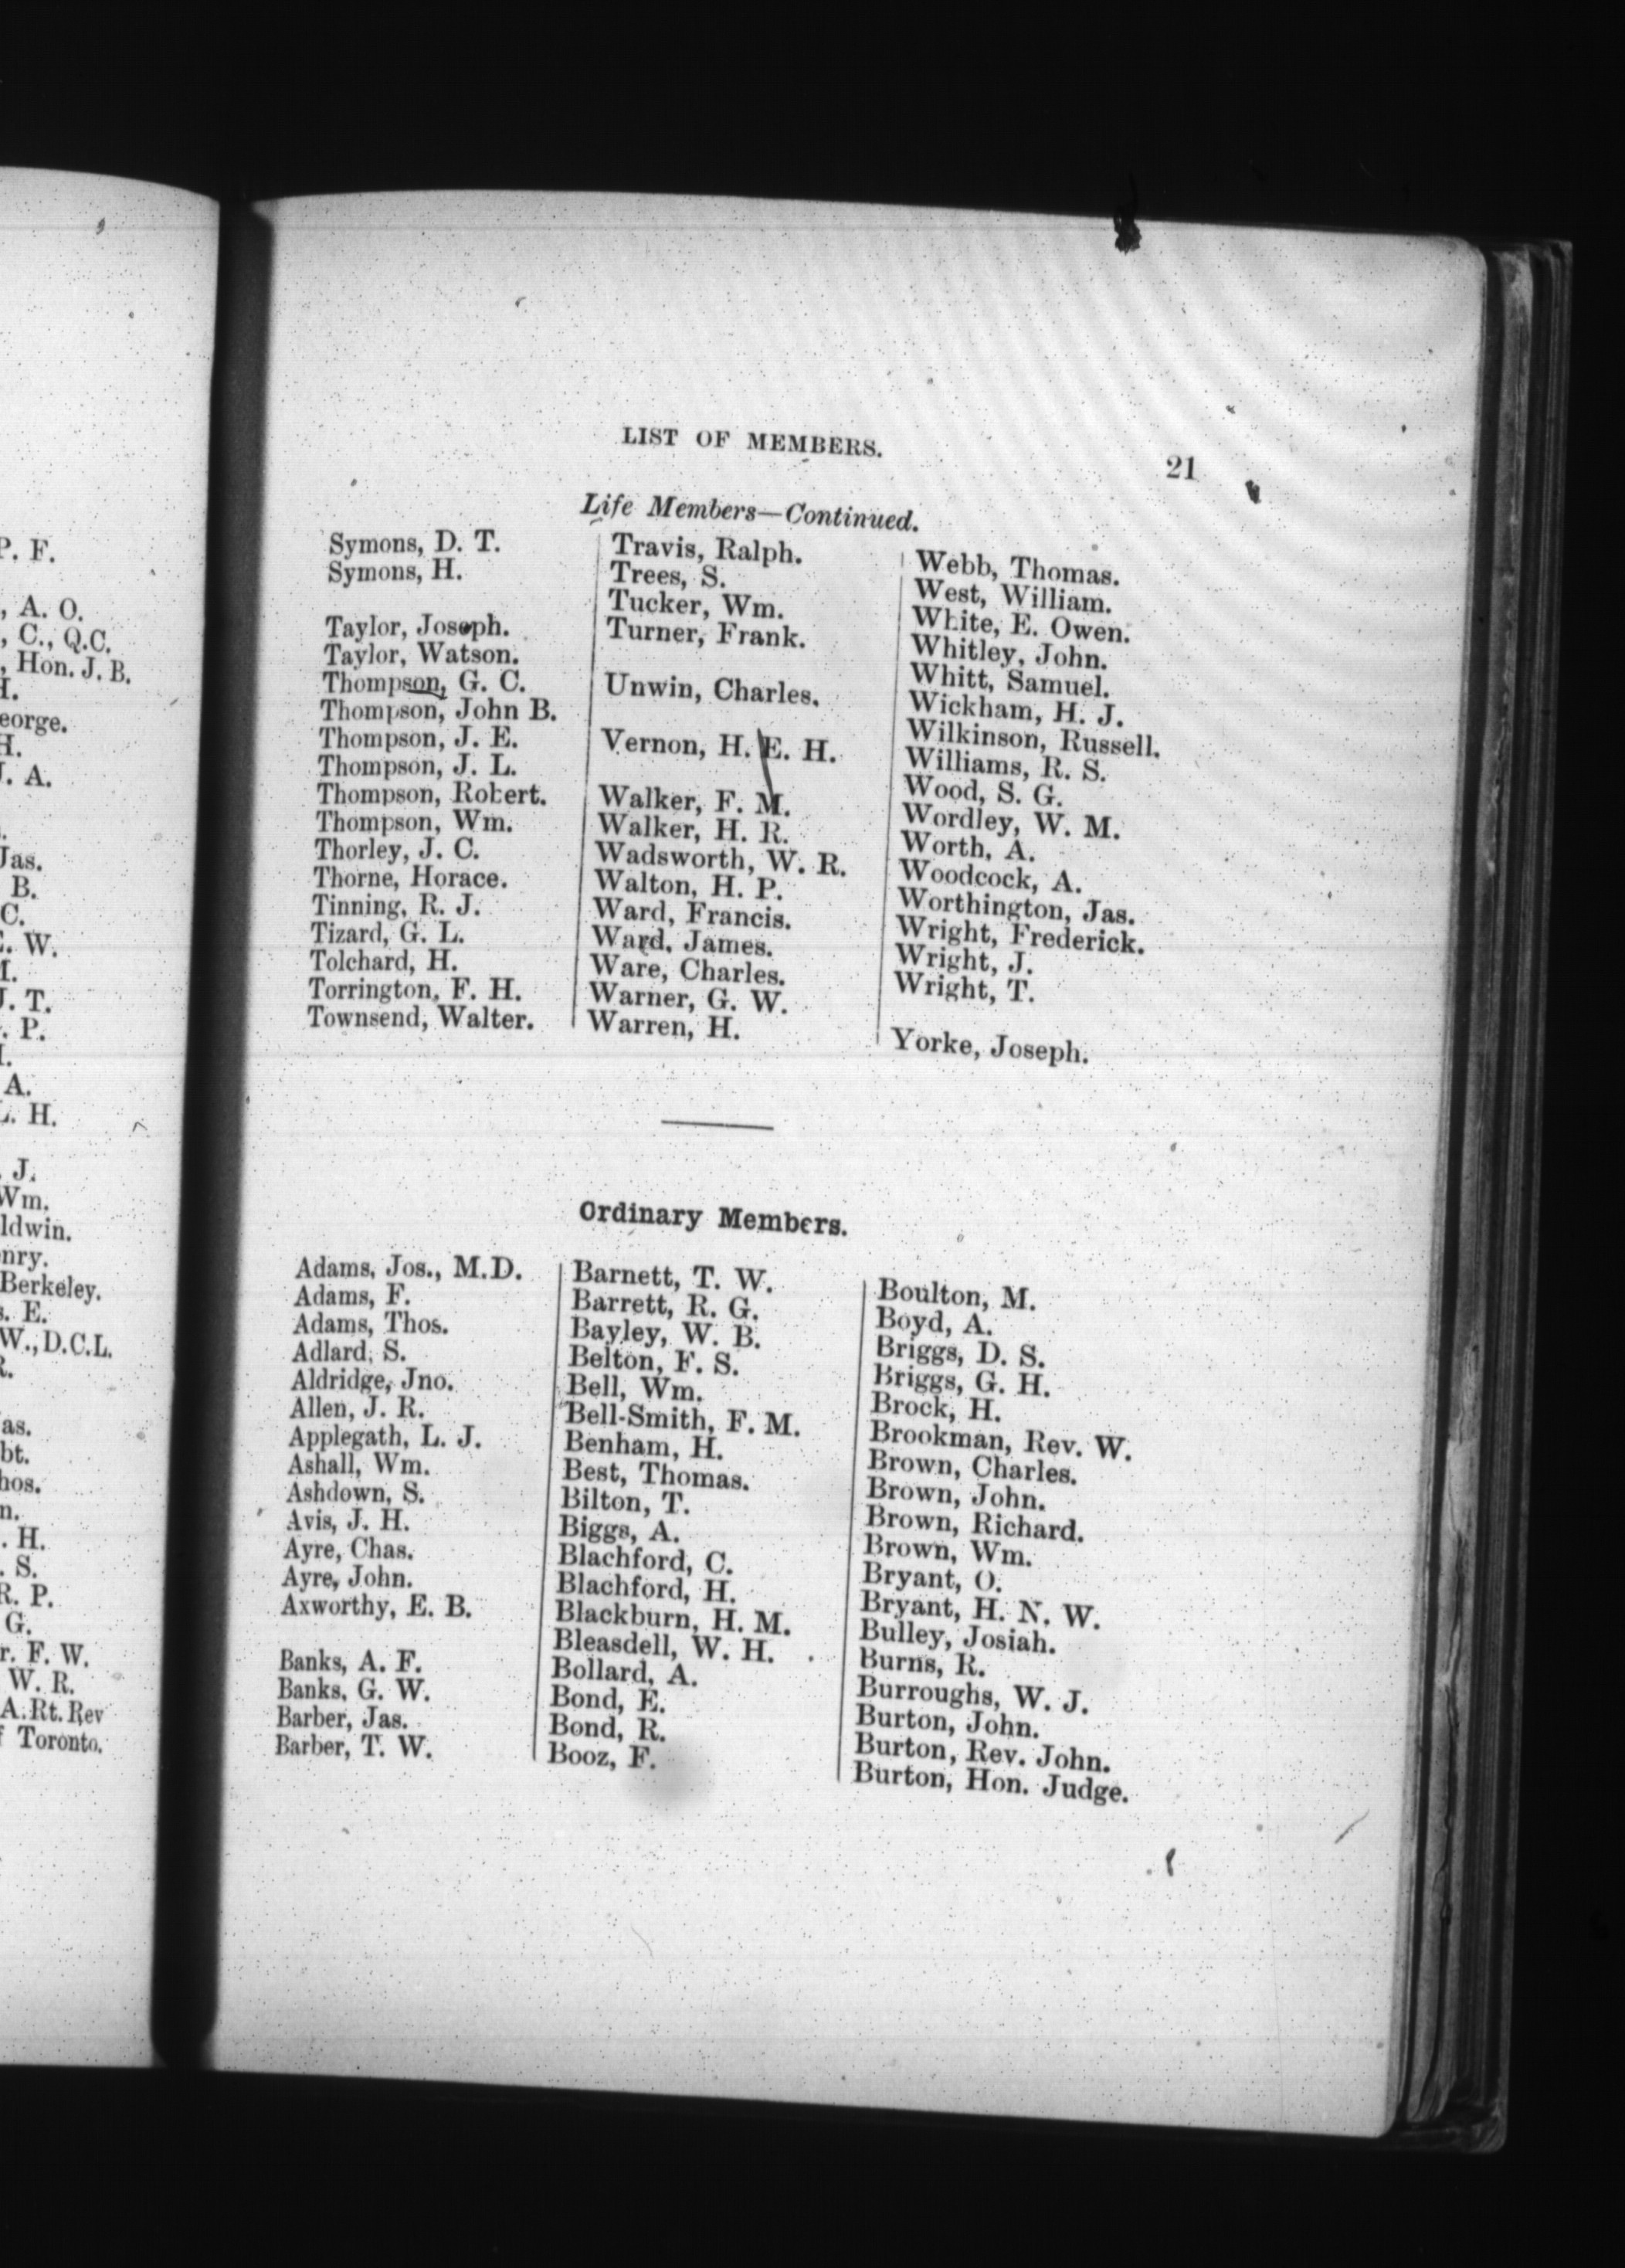 P. F.
, A. O.
, C., Q.C.
, Hon. J. B.
H.
eorge.
H.
J. A.
Jas.
B.
C.
W.
J. T.
P.
A.
H.
J.
Wm.
ldwin.
nry.
Berkeley.
s. E.
W., D.C.L.
R.
as.
bt.
hos.
n.
. H.
. S.
R. P.
G.
r. F. W.
W. R.
A. Rt. Rev
f Toronto.
LIST OF MEMBERS.
21
Life Members—Continued.
Symons, D. T.
Symons, H.
Taylor, Joseph.
Taylor, Watson.
Thompson, G. C.
Thompson, John B.
Thompson, J. E.
Thompson, J. L.
Thompson, Robert.
Thompson, Wm.
Thorley, J. C.
Thorne, Horace.
Tinning, R. J.
Tizard, G. L.
Tolchard, H.
Torrington, F. H.
Townsend, Walter.
Travis, Ralph.
Trees, S.
Tucker, Wm.
Turner, Frank.
Unwin, Charles.
Vernon, H. E. H.
Walker, F. M.
Walker, H. R.
Wadsworth, W. R.
Walton, H. P.
Ward, Francis.
Ward, James.
Ware, Charles.
Warner, G. W.
Warren, H.
Webb, Thomas.
West, William.
White, E. Owen.
Whitley, John.
Whitt, Samuel.
Wickham, H. J.
Wilkinson, Russell.
Williams, R. S.
Wood, S. G.
Wordley, W. M.
Worth, A.
Woodcock, A.
Worthington, Jas.
Wright, Frederick.
Wright, J.
Wright, T.
Yorke, Joseph.
Ordinary Members.
Adams, Jos., M.D.
Adams, F.
Adams, Thos.
Adlard, S.
Aldridge, Jno.
Allen, J. R.
Applegath, L. J.
Ashall, Wm.
Ashdown, S.
Avis, J. H.
Ayre, Chas.
Ayre, John.
Axworthy, E. B.
Banks, A. F.
Banks, G. W.
Barber, Jas.
Barber, T. W.
Barnett, T. W.
Barrett, R. G.
Bayley, W. B.
Belton, F. S.
Bell, Wm.
Bell-Smith, F. M.
Benham, H.
Best, Thomas.
Bilton, T.
Biggs, A.
Blachford, C.
Blachford, H.
Blackburn, H. M.
Bleasdell, W. H.
Bollard, A.
Bond, E.
Bond, R.
Booz, F.
Boulton, M.
Boyd, A.
Briggs, D. S.
Briggs, G. H.
Brock, H.
Brookman, Rev. W.
Brown, Charles.
Brown, John.
Brown, Richard.
Brown, Wm.
Bryant, O.
Bryant, H. N. W.
Bulley, Josiah.
Burns, R.
Burroughs, W. J.
Burton, John.
Burton, Rev. John.
Burton, Hon. Judge.